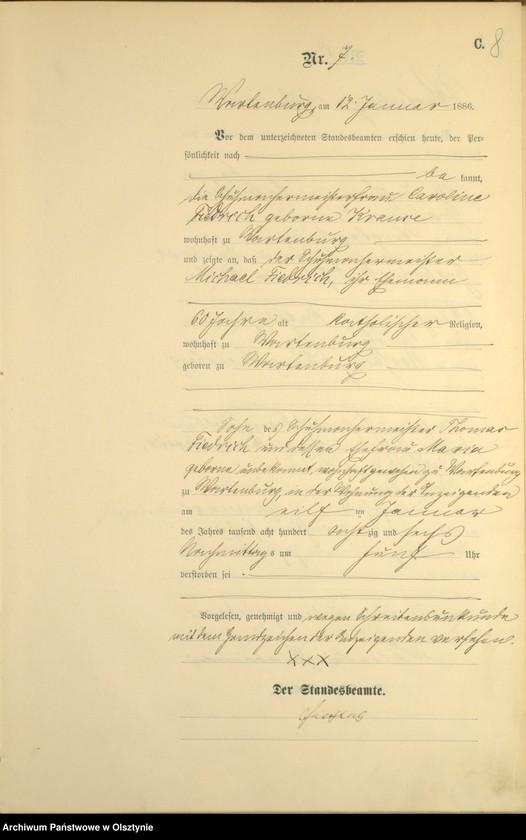 C. 8
Nr. 7.
Wartenburg, am 12. Januar 1886.
Vor dem unterzeichneten Standesbeamten erschien heute, der Per-
sönlichkeit nach
be kannt,
die Schuhmachermeisterfrau Caroline
Fiedrich geborne Krause
wohnhaft zu Wartenburg
und zeigte an, daß der Schuhmachermeister
Michael Fiedrich, ihr Ehemann
60 Jahre alt katholischer Religion,
wohnhaft zu Wartenburg
geboren zu Wartenburg
Sohn des Schuhmachermeister Thomas
Fiedrich und dessen Ehefrau Maria
geborne unbekannt, wohnhaft gewesen zu Wartenburg
zu Wartenburg, in der Wohnung der Anzeigenden
am eilf ten Januar
des Jahres tausend acht hundert acht zig und sechs
Nachmittags um fünf Uhr
verstorben sei.
Vorgelesen, genehmigt und wegen Schreibensunkunde
mit dem Handzeichen der Anzeigenden versehen.
XXX
Der Standesbeamte.
Archiwum Państwowe w Olsztynie